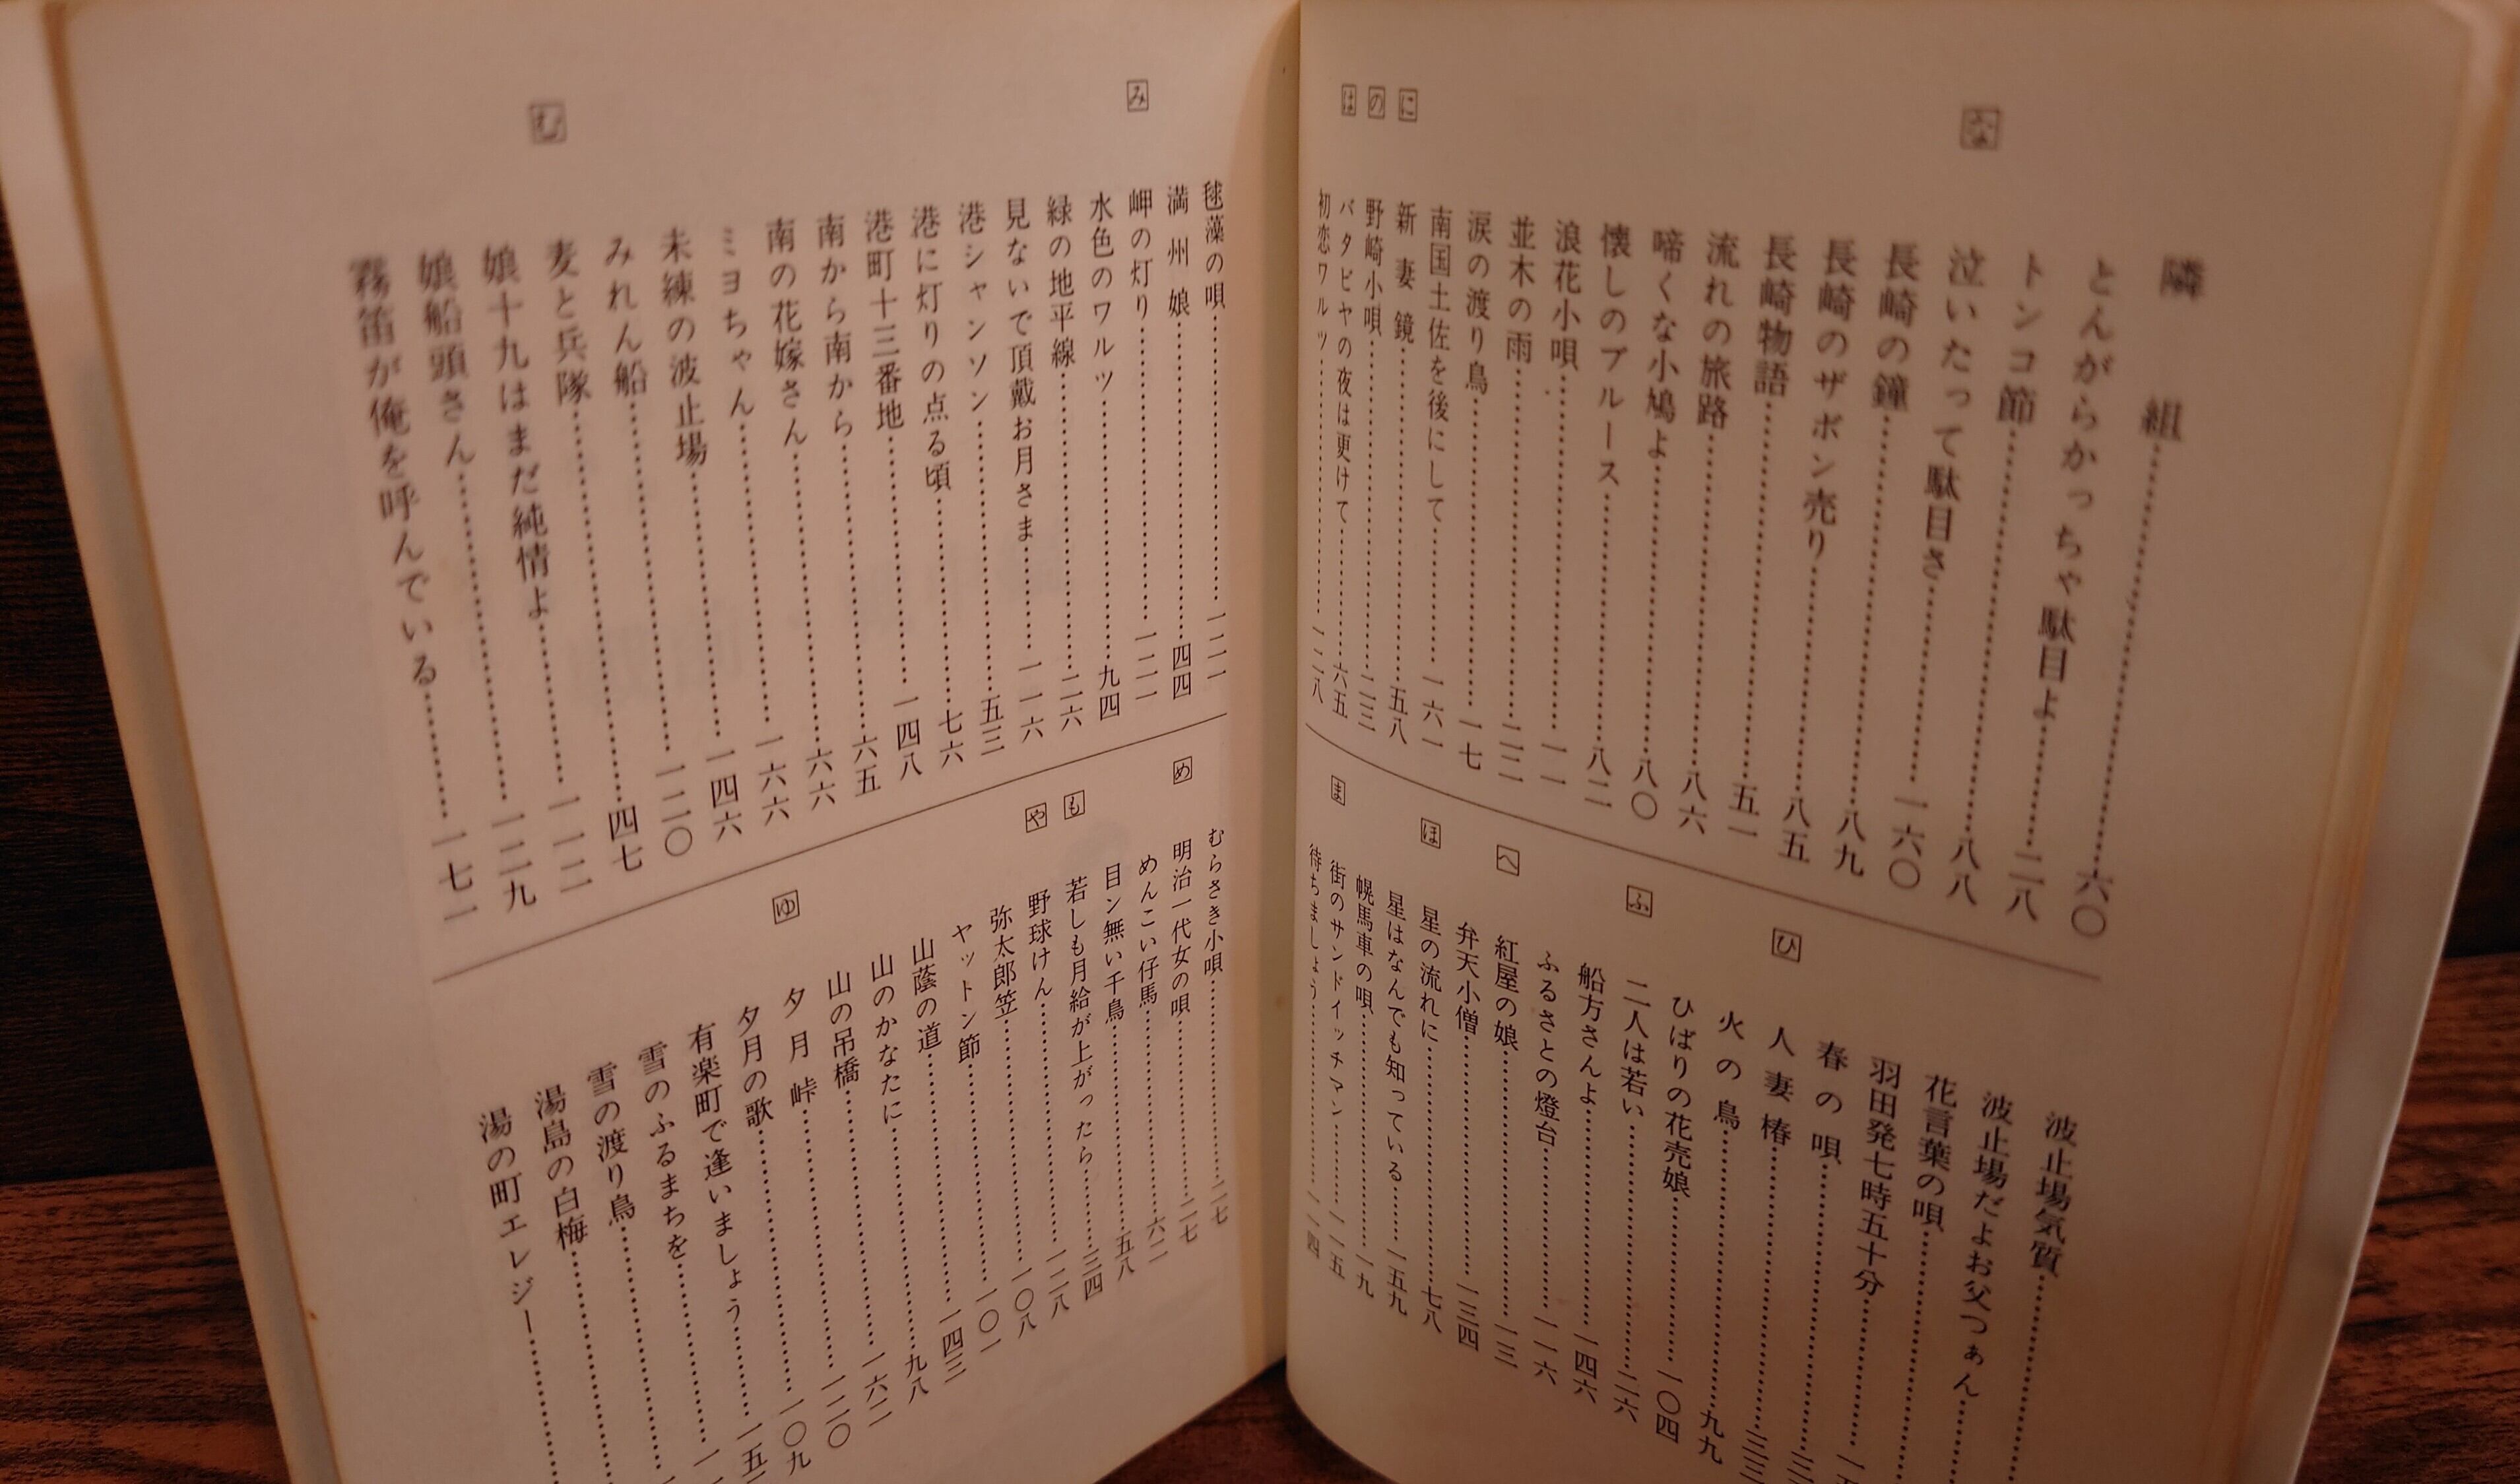 隣組……六〇
とんがらかっちゃ駄目よ……二八
トンコ節……八八
な
泣いたって駄目さ……一六〇
長崎の鐘……八九
長崎のザボン売り……八五
長崎物語……五一
流れの旅路……八六
啼くな小鳩よ……八〇
懐しのブルース……八二
浪花小唄……一一
並木の雨……二二
涙の渡り鳥……一七
南国土佐を後にして……一六一
に
新妻鏡……五八
の
野崎小唄……三三
は
バタビヤの夜は更けて……六五
初恋ワルツ……一二八
波止場気質
波止場だよお父つぁん
花言葉の唄
羽田発七時五十分
春の唄
ひ
人妻椿
火の鳥……九九
ひばりの花売娘……一〇四
ふ
二人は若い……二六
船方さんよ……一四六
ふるさとの燈台……一一六
へ
紅屋の娘……一三
弁天小僧……一三四
ほ
星の流れに……七八
星はなんでも知っている……一五九
幌馬車の唄……一九
ま
街のサンドイッチマン……一一五
待ちましょう……一四
毬藻の唄
満州娘……四四
み
岬の灯り
水色のワルツ……九四
緑の地平線……二六
見ないで頂戴お月さま……一一六
港シャンソン……五三
港に灯りの点る頃……七六
港町十三番地……一四八
南から南から……六五
南の花嫁さん……六六
ミヨちゃん……一六六
未練の波止場……一四六
みれん船……一二〇
む
麦と兵隊……四七
娘十九はまだ純情よ……一一二
娘船頭さん……一二九
霧笛が俺を呼んでいる……一七一
むらさき小唄……二七
め
明治一代女の唄……二七
めんこい仔馬……六二
目ン無い千鳥……五八
も
若しも月給が上がったら……三四
や
野球けん……一二八
弥太郎笠……一〇八
ヤットン節……一〇一
山蔭の道……一四三
山のかなたに……九八
山の吊橋……一六二
ゆ
夕月峠……一二〇
夕月の歌……一〇九
有楽町で逢いましょう
雪のふるまちを
雪の渡り鳥
湯島の白梅
湯の町エレジー